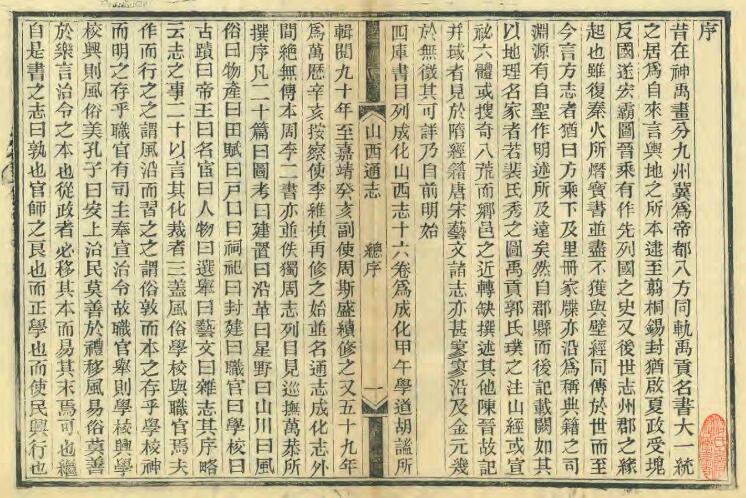 序
昔在神禹畫分九州冀爲帝都八方同軌禹貢名書大一統
之居爲自來言輿地之所本逮至翦桐錫封猶啟夏政受塊
反國遂宏霸圖晉乘有作先列國之史又後世志州郡之緣
起也雖復秦火所燔寶書並盡不獲與壁經同傳於世而至
今言方志者猶曰方乘下及里冊家牒亦沿爲稱典籍之司
淵源有自聖作明述所及遠矣然自郡縣而後記載闕如其
以地理名家者若裴氏秀之圖禹貢郭氏璞之注山經或宣
祕六體或搜奇八荒而鄉邑之近轉缺撰述其他陳晉故記
并域者見於隋經籍唐宋藝文諸志亦甚寥寥沿及金元幾
於無徵其可詳乃自前明始
四庫書目列成化山西志十六卷爲成化甲午學道胡謐所
山西通志
總序
一
輯閱九十年至嘉靖癸亥副使周斯盛續修之又五十九年
爲萬歷辛亥按察使李維楨再修之始並名通志成化志外
間絶無傳本周李二書亦並佚獨周志列目見巡撫萬恭所
撰序凡二十篇曰圖考曰建置曰沿革曰星野曰山川曰風
俗曰物產曰田賦曰戸口曰祠祀曰封建曰職官曰學校曰
古蹟曰帝王曰名宦曰人物曰選舉曰藝文曰雜志其序略
云志之事二十以言其化裁者三蓋風俗學校與職官焉夫
作而行之之謂風沿而習之之謂俗敦而本之存乎學校神
而明之存乎職官有司主奉宣治令故職官舉則學校興學
校興則風俗美孔子曰安上治民莫善於禮移風易俗莫善
於樂言治令之本也從政者必移其本而易其末焉可也繼
自是書之志曰孰也官師之良也而正學也而使民興行也